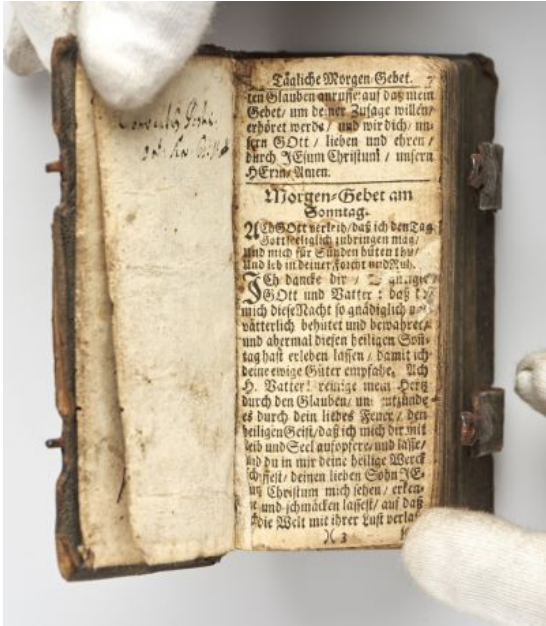 Tägliche Morgen-Gebet. 7
ten Glauben anruffe: auf daß mein
Gebet/ um deiner Zusage willen/
erhöret werde/ und wir dich/ un-
sern GOtt/ lieben und ehren/
durch JEsum Christum/ unsern
HErrn/ Amen.
Morgen-Gebet am
Sonntag.
ACh GOtt verleih/ daß ich den Tag
Gottseeliglich zubringen mag/
Und mich für Sünden hüten thu/
Und leb in deiner Forcht und Ruh.
ICh dancke dir/
GOtt und Vatter: daß
mich diese Nacht so gnädiglich
vätterlich behütet und bewahret/
und abermal diesen heiligen Sonn-
tag hast erleben lassen/ damit ich
deine ewige Güter empfahe. Ach
H. Vatter! reinige mein Hertz
durch den Glauben/ entzünde
es durch dein liebes Feuer/ den
heiligen Geist/ daß ich mich dir mit
Leib und Seel aufopfere/ und lasse/
du in mir deine heilige Werck
deinen lieben Sohn JE-
Christum mich sehen/ erken-
und schmäcken lassest/ auf daß
die Welt mit ihrer Lust
3